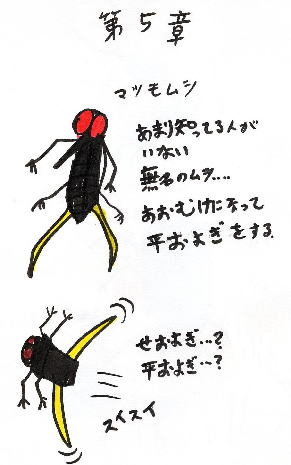 第5章
マツモムシ
あまり知ってる人が
いない
無名のムシ....
あおむけになって
平およぎをする
せおよぎ...?
平およぎ...?
スイスイ